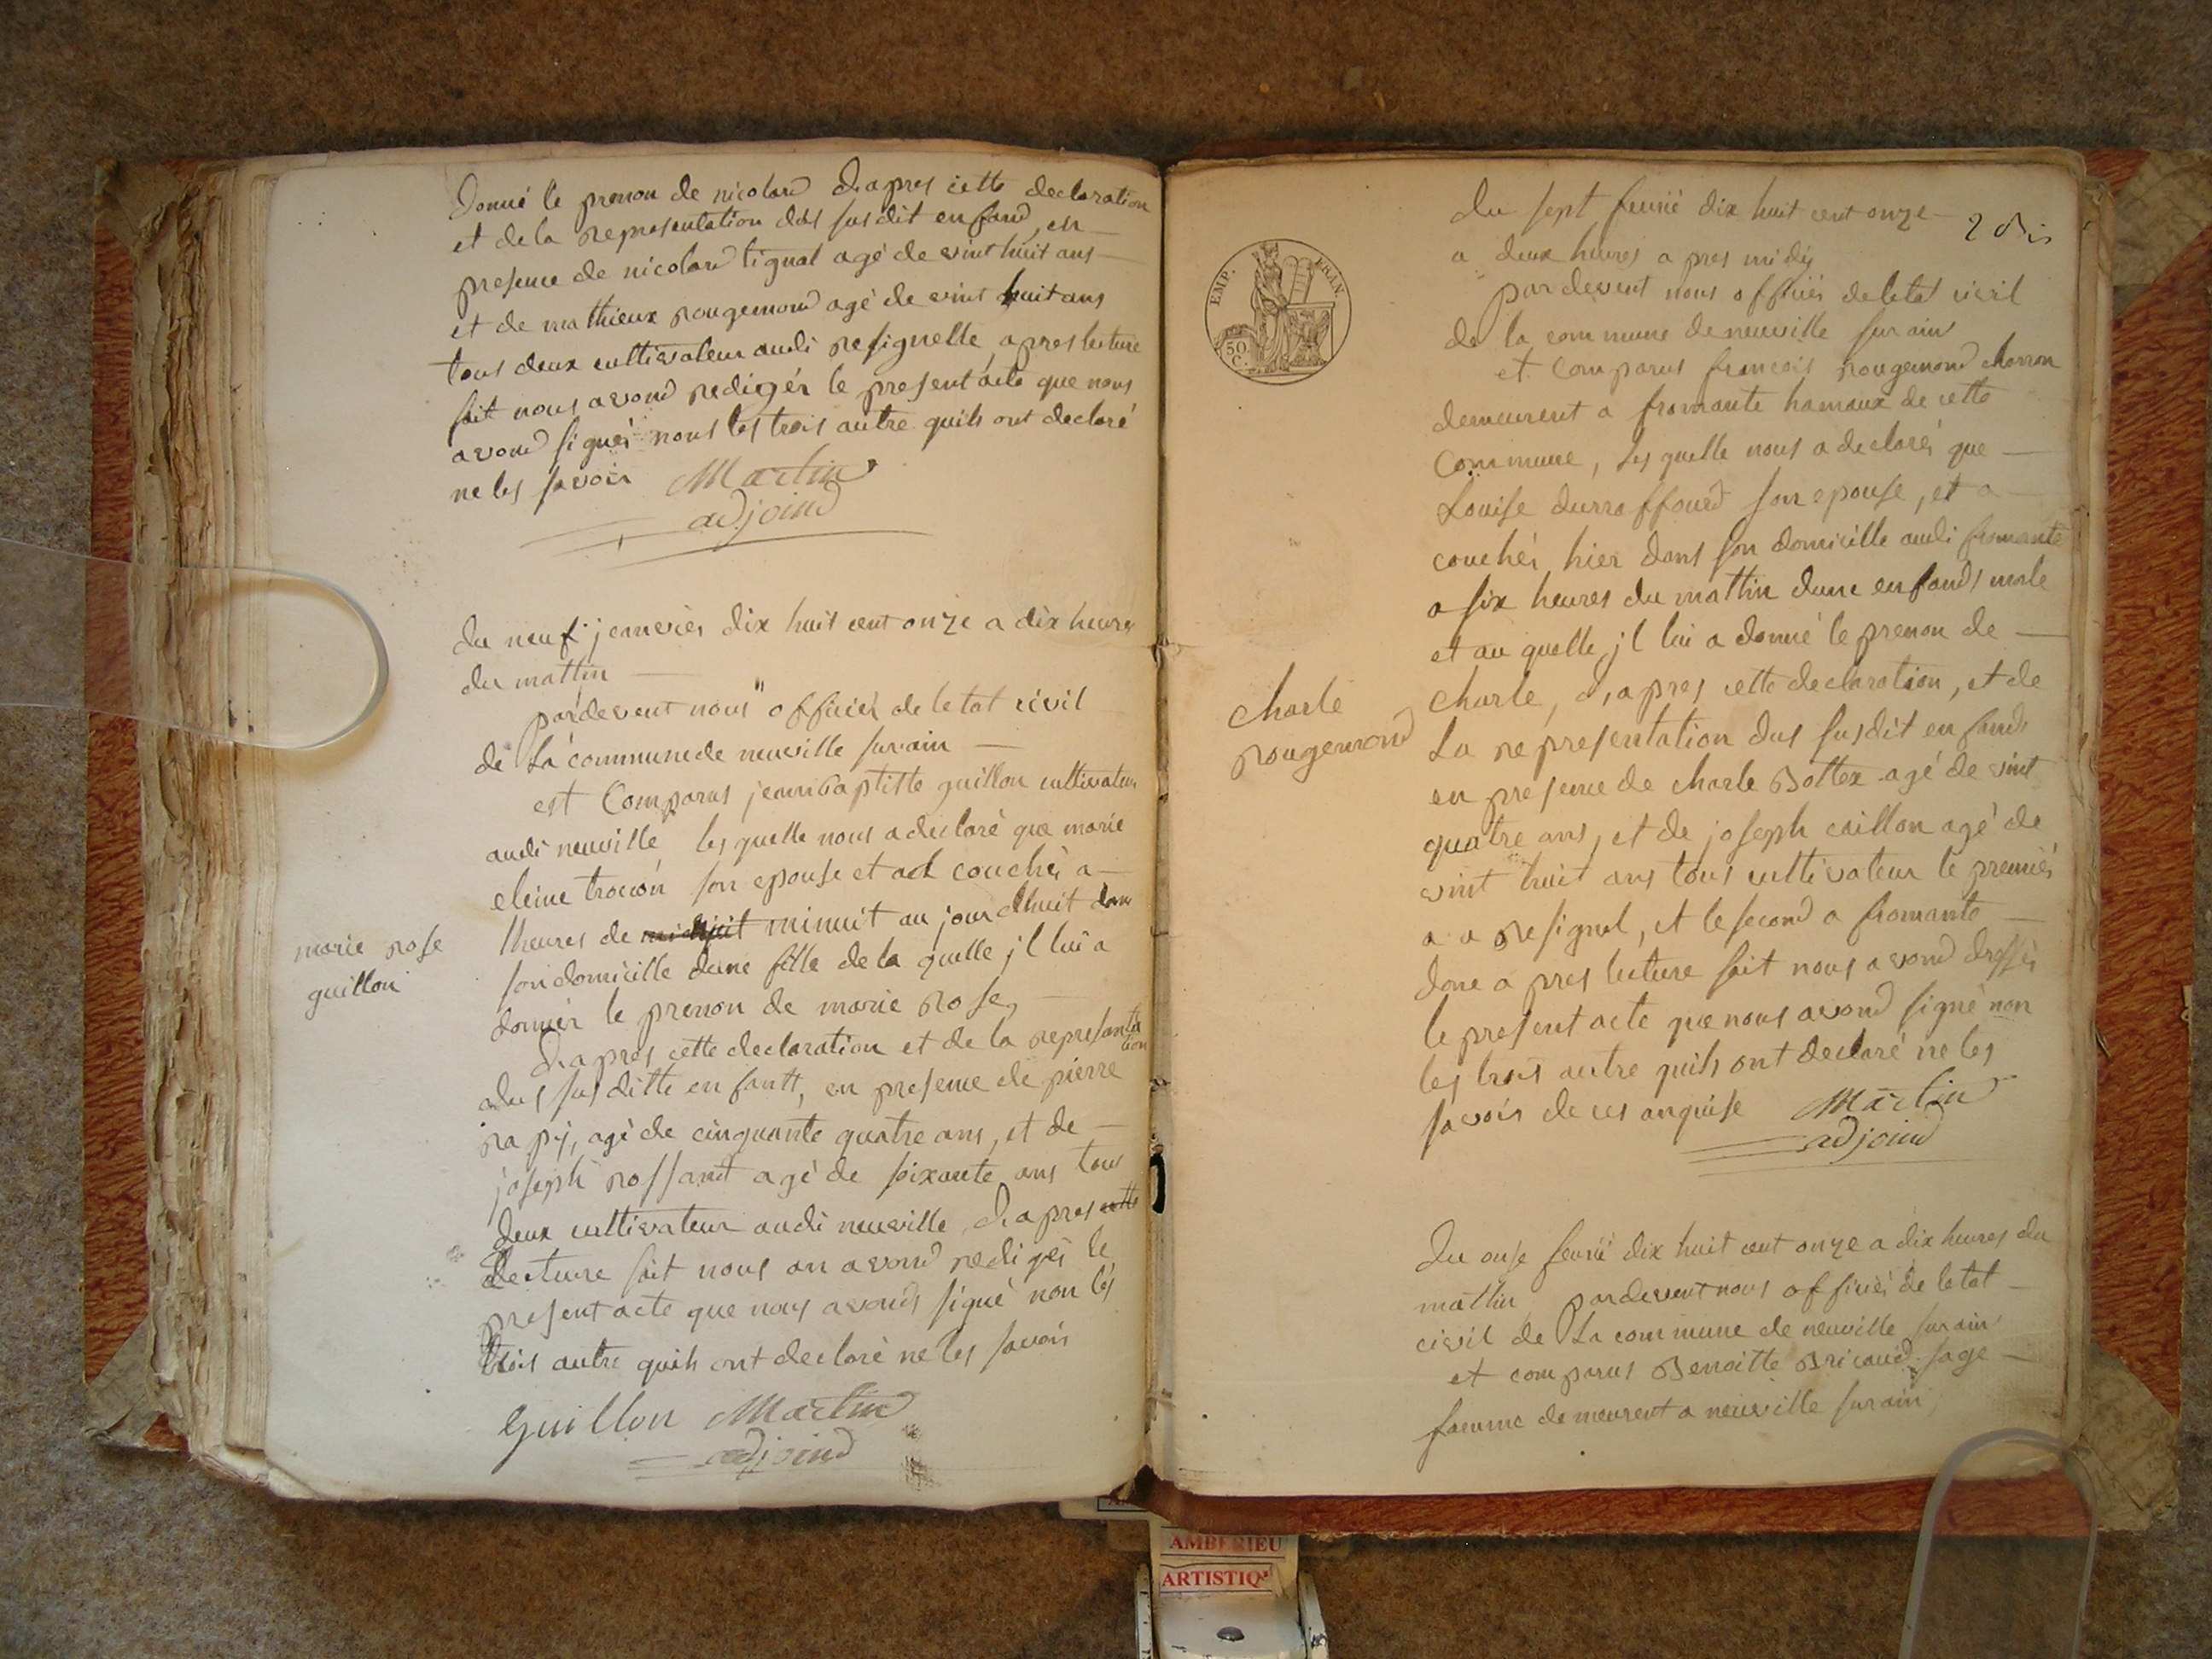 donné le prenon de nicolard d,apres cette declaration
et de la representation des susdit enfand, en
presence de nicolard tignat agé de vint huit ans
et de mathieux rougemond agé de vint huit ans
tous deux cultivateur audi resignelle, apres lecture
fait nous avond redigér le present acte que nous
avond signér nous les trois autre quils ont declaré
ne les savoir Martin
adjoind
du neuf jenvièr dix huit cent onze a dix heures
du mattin
pardevent nous officièr de letat civil
de La commune de neuville sur ain
est Comparus jeanbaptiste guillon cultivateur
audi neuville les quelle nous a declaré que marie
son epouse et couchér a
heures de minuit au jourdhuit dans
son domicille dune fille de la quelle jl lui a
donnér le prenon de marie rose,
marie rose
guillon
d,apres cette declaration et de la representa
tion
dus susditte enfantt, en presence de pierre
rapÿ, agé de cinquante quatre ans, et de
joseph rossand agé de soixante ans tous
deux cultivateur audi neuville d,apres cette
Lecture fait nous an avond redigér le
present acte que nous avonds signé non les
trois autre quils ont declaré ne les savoir
Guillon Martin
adjoind
2
du sept feuriè dix huit cent onze
a deux heures a pres midÿ
EMP. FRAN.
50
C.
pardevent nous officièr de letat civil
de la commune de neuville sur ain
et Comparus francois rougemond charron
demeurent a fromante hamaux de cette
Commune, Les quelle nous a declarér que
Louise durraffourd son epouse, et a
couchér hier dans son domicille audi fromante
a six heures du mattin dune enfands male
et au quelle, jl lui a donné le prenon de
charle
rougemond
charle, d,apres cette declaration, et de
La representation dus susdit enfands
en presence de charle Bottex agé de vint
quatre ans, et de joseph caillon agé de
vint huit ans tous cultivateur le premiér
a a resignel, et le second a fromante
done a pres lecture fait nous avond dressér
le present acte que nous avond signé non
les trois autre quils ont declaré ne les
savoir de ces anquise Martin
adjoind
du onse feuriè dix huit cent onze a dix heures du
mattin pardevent nous officièr de letat
civil de La commune de neuville sur ain
et comparus Benoitte Bricaud sage
famme demeurent a neuville sur ain,
AMBERIEU
ARTISTIQ